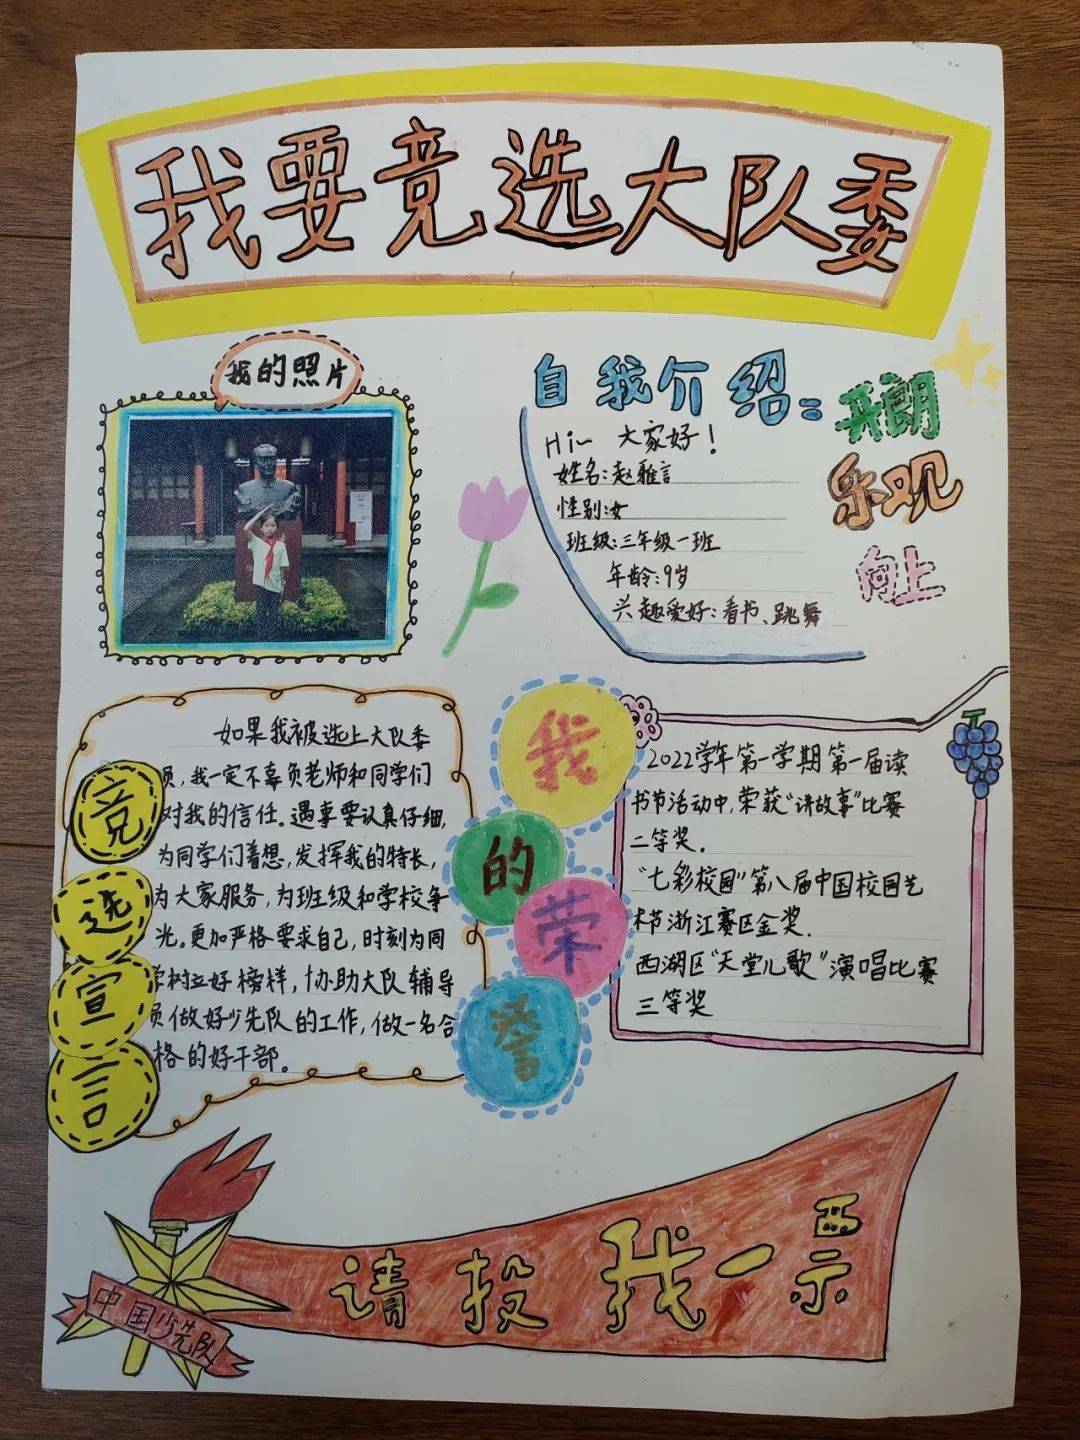 我要竞选大队委
我的照片
自我介绍:
Hi~ 大家好!
姓名:赵雅言
性别:女
班级:三年级一班
年龄:9岁
兴趣爱好:看书、跳舞
开朗
乐观
向上
竞选宣言
如果我被选上大队委
员,我一定不辜负老师和同学们
对我的信任。遇事要认真仔细,
为同学们着想,发挥我的特长,
为大家服务,为班级和学校争
光。更加严格要求自己,时刻为同
学树立好榜样,协助大队辅导
员做好少先队的工作,做一名合
格的好干部。
我的荣誉
2022学年第一学期第一届读
书节活动中,荣获“讲故事”比赛
二等奖.
“七彩校园”第八届中国校园艺
术节浙江赛区金奖.
西湖区“天堂儿歌”演唱比赛
三等奖
中国少先队
请投我一票